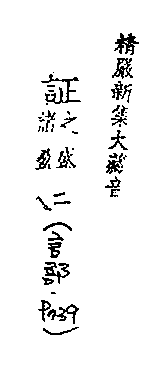 精嚴新集大藏音
証 之盛 諸盈 二 (言部.